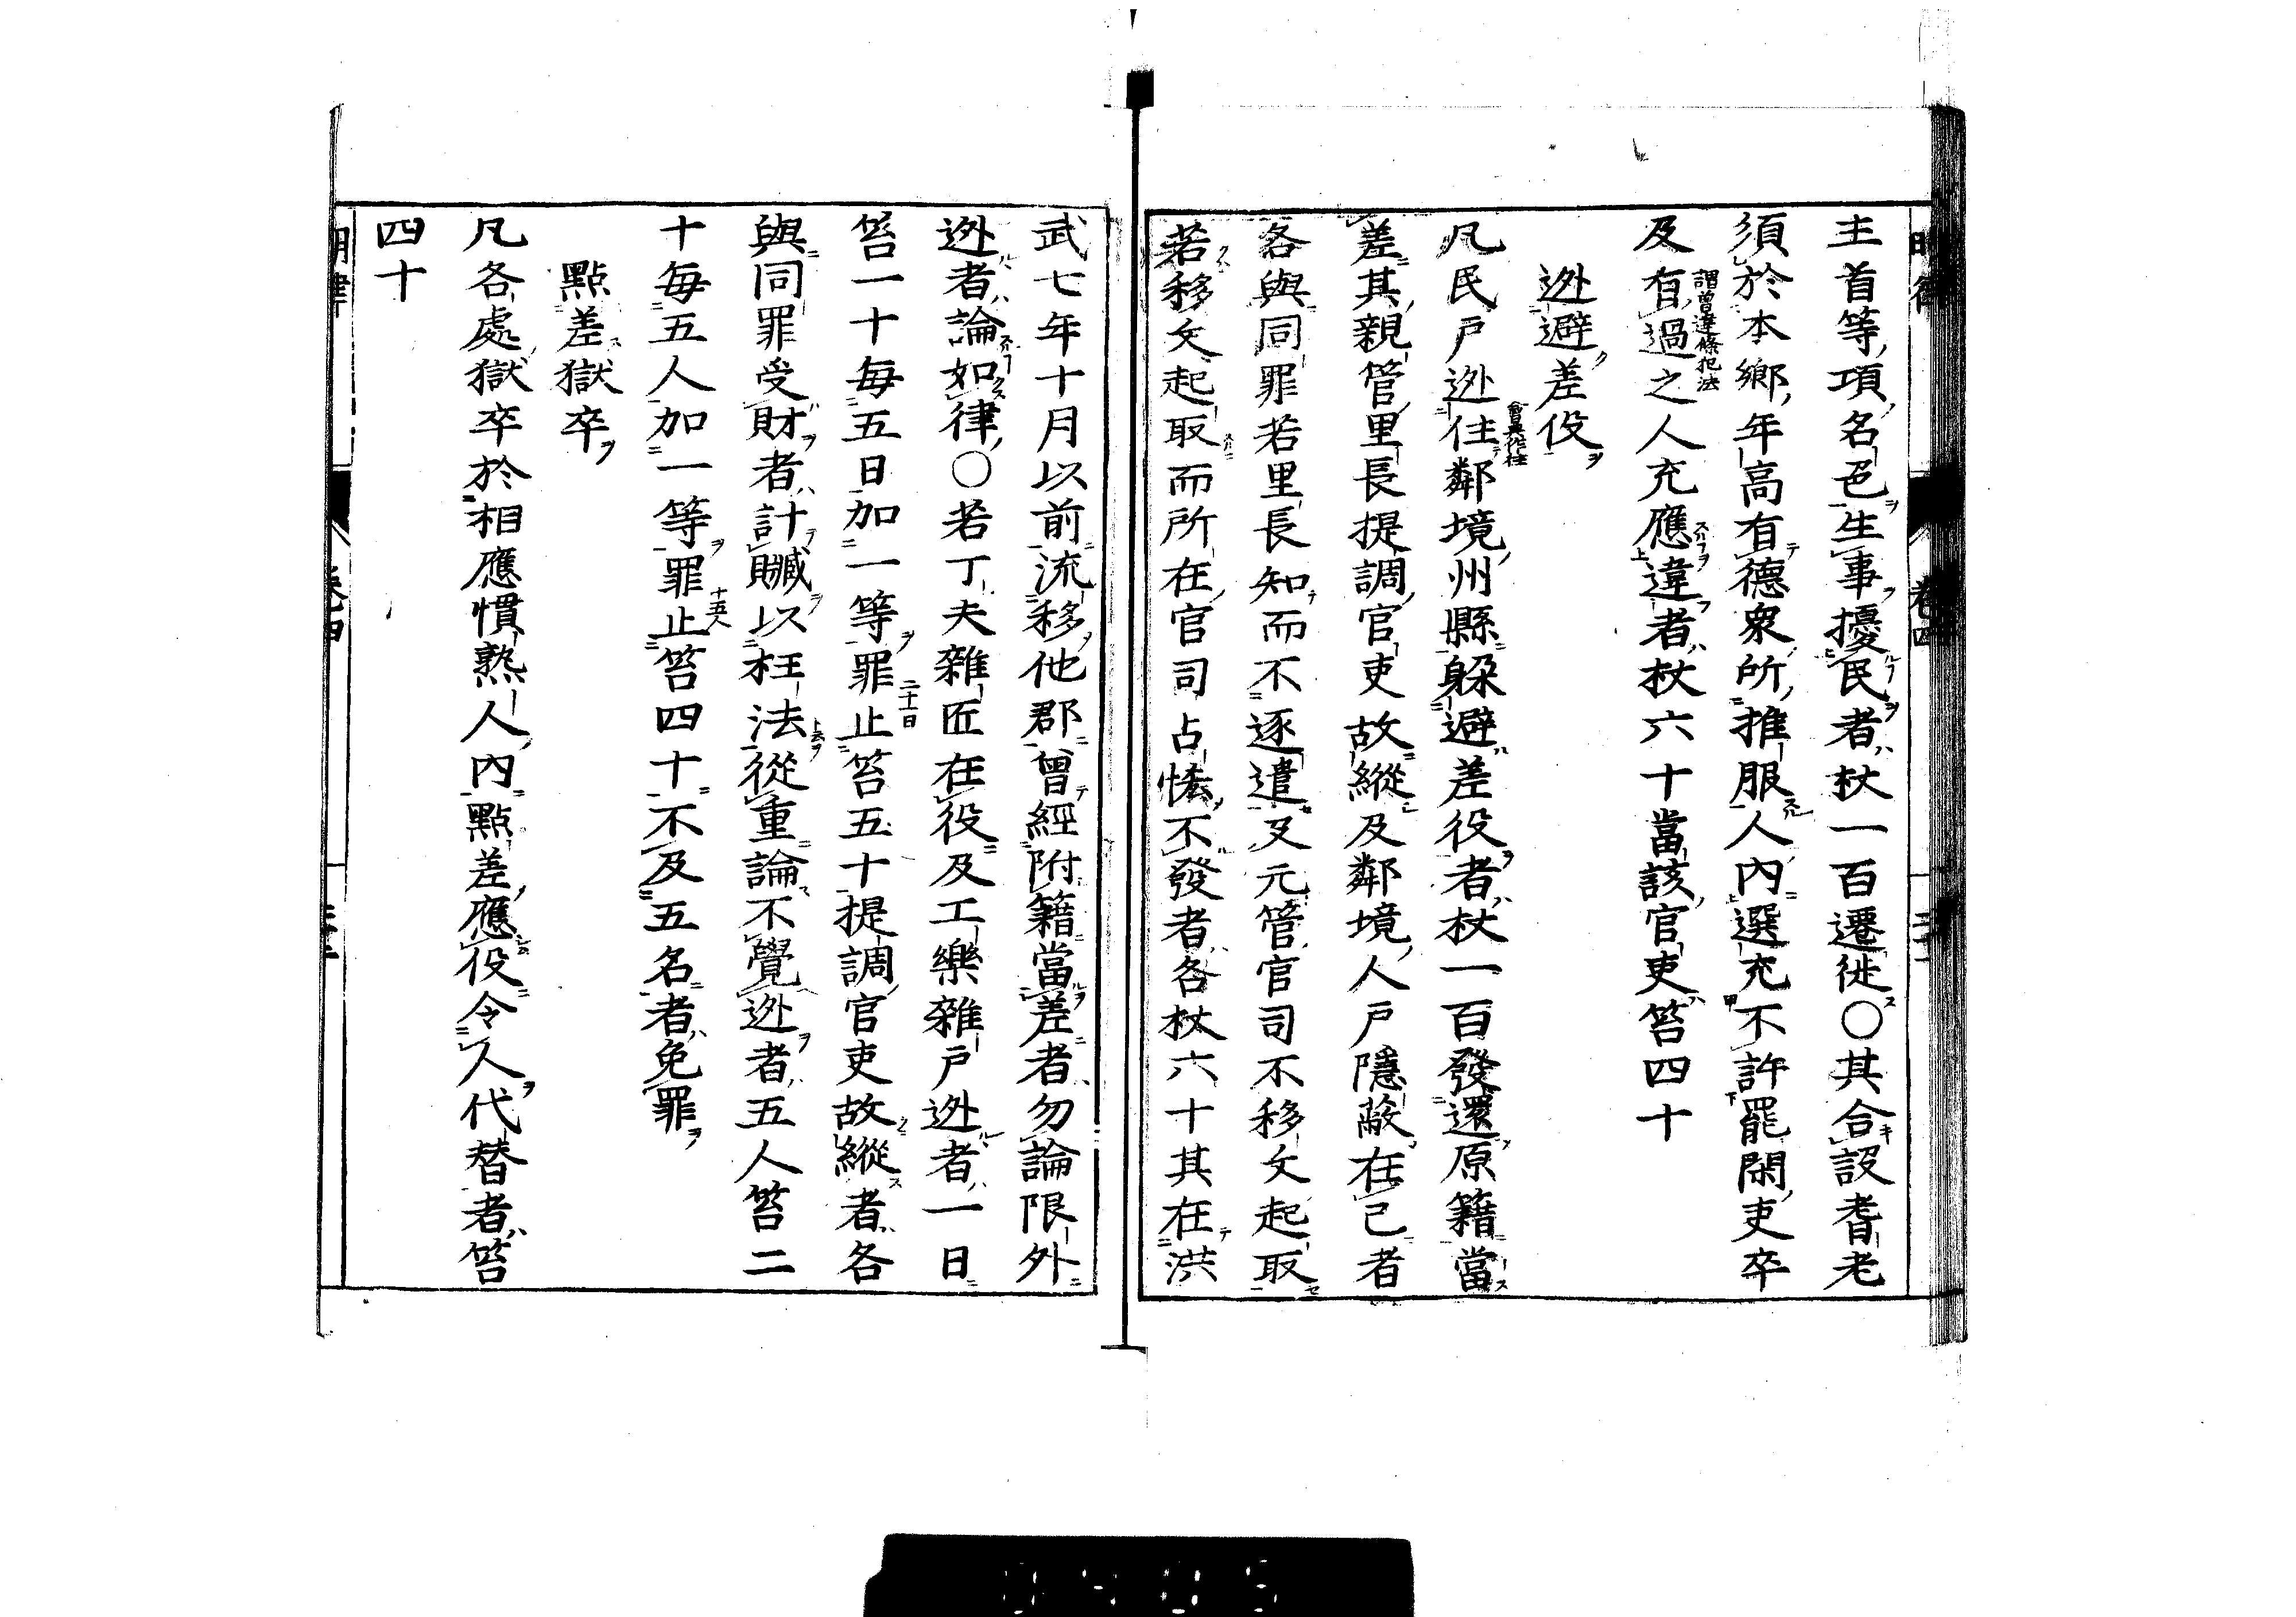 主首等項名色生事擾民者杖一百遷徙〇其合設耆老
須於本鄉年高有德衆所推服人內選充不許罷閑吏卒
及有過之人充應違者杖六十當該官吏笞四十
謂曾違條犯法
逃避差役
凡民戶逃住鄰境州縣躲避差役者杖一百發還原籍當
差其親管里長提調官吏故縱及鄰境人戶隱蔽在己者
各與同罪若里長知而不逐遣及元管官司不移文起取
若移文起取而所在官司占恡不發者各杖六十其在洪
武七年十月以前流移他郡曾經附籍當差者勿論限外
逃者論如律〇若丁夫雜匠在役及工樂雜戶逃者一日
笞一十每五日加一等罪止笞五十提調官吏故縱者各
二十一日
與同罪受財者計贓以枉法從重論不覺逃者五人笞二
十每五人加一等罪止笞四十不及五名者免罪
十五人
點差獄卒
凡各處獄卒於相應慣熟人內點差應役令人代替者笞
四十
明律
卷四